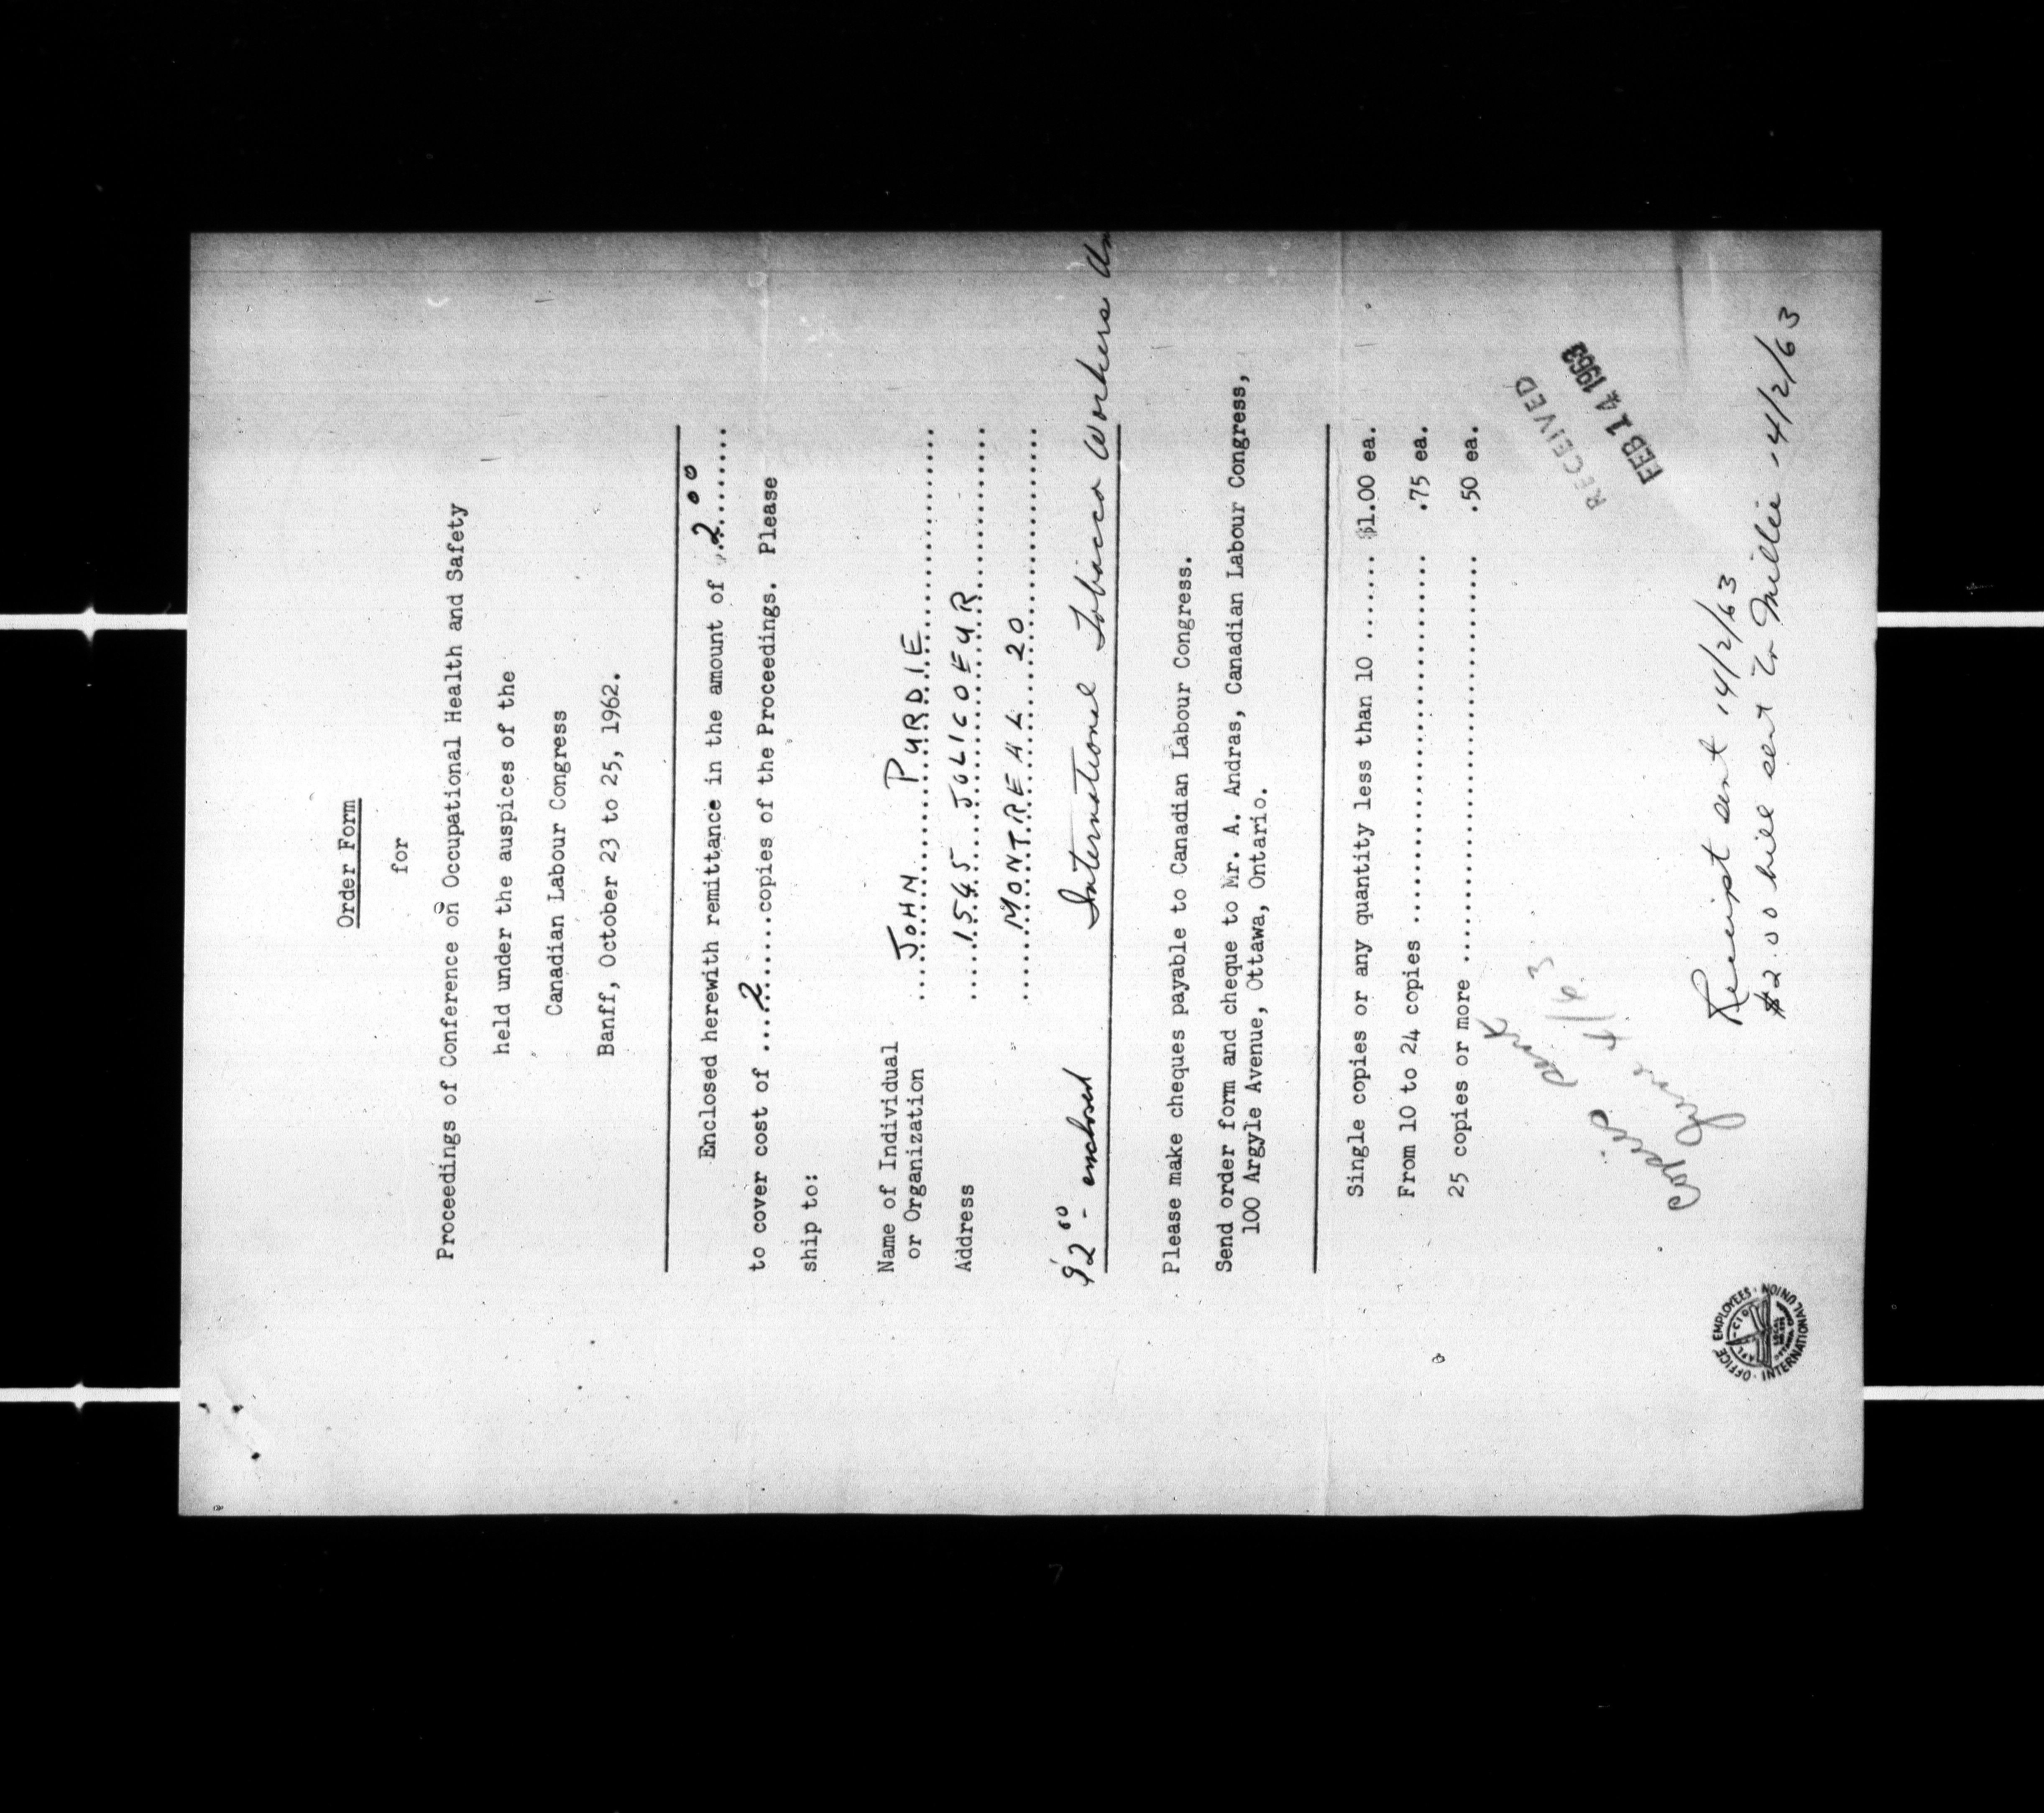 Order Form
for
Proceedings of Conference on Occupational Health and Safety
held under the auspices of the
Canadian Labour Congress
Banff, October 23 to 25, 1962.
Enclosed herewith remittance in the amount of $.2.00........
to cover cost of ....2.....copies of the Proceedings. Please
ship to:
Name of Individual
or Organization ....JOHN......PURDIE..................
Address ....1545....JOLICOEUR..................
.......MONTREAL 20......................
$2.00 - enclosed International Tobacco Workers Un
Please make cheques payable to Canadian Labour Congress.
Send order form and cheque to Mr. A. Andras, Canadian Labour Congress,
100 Argyle Avenue, Ottawa, Ontario.
Single copies or any quantity less than 10 ....... $1.00 ea.
From 10 to 24 copies ............................... .75 ea.
25 copies or more .................................. .50 ea.
RECEIVED
FEB 14 1963
copies sent
June 4/63
Receipt sent 14/2/63
$2.00 bill sent to Millie 14/2/63
OFFICE EMPLOYEES · INTERNATIONAL UNION
AFL-CIO